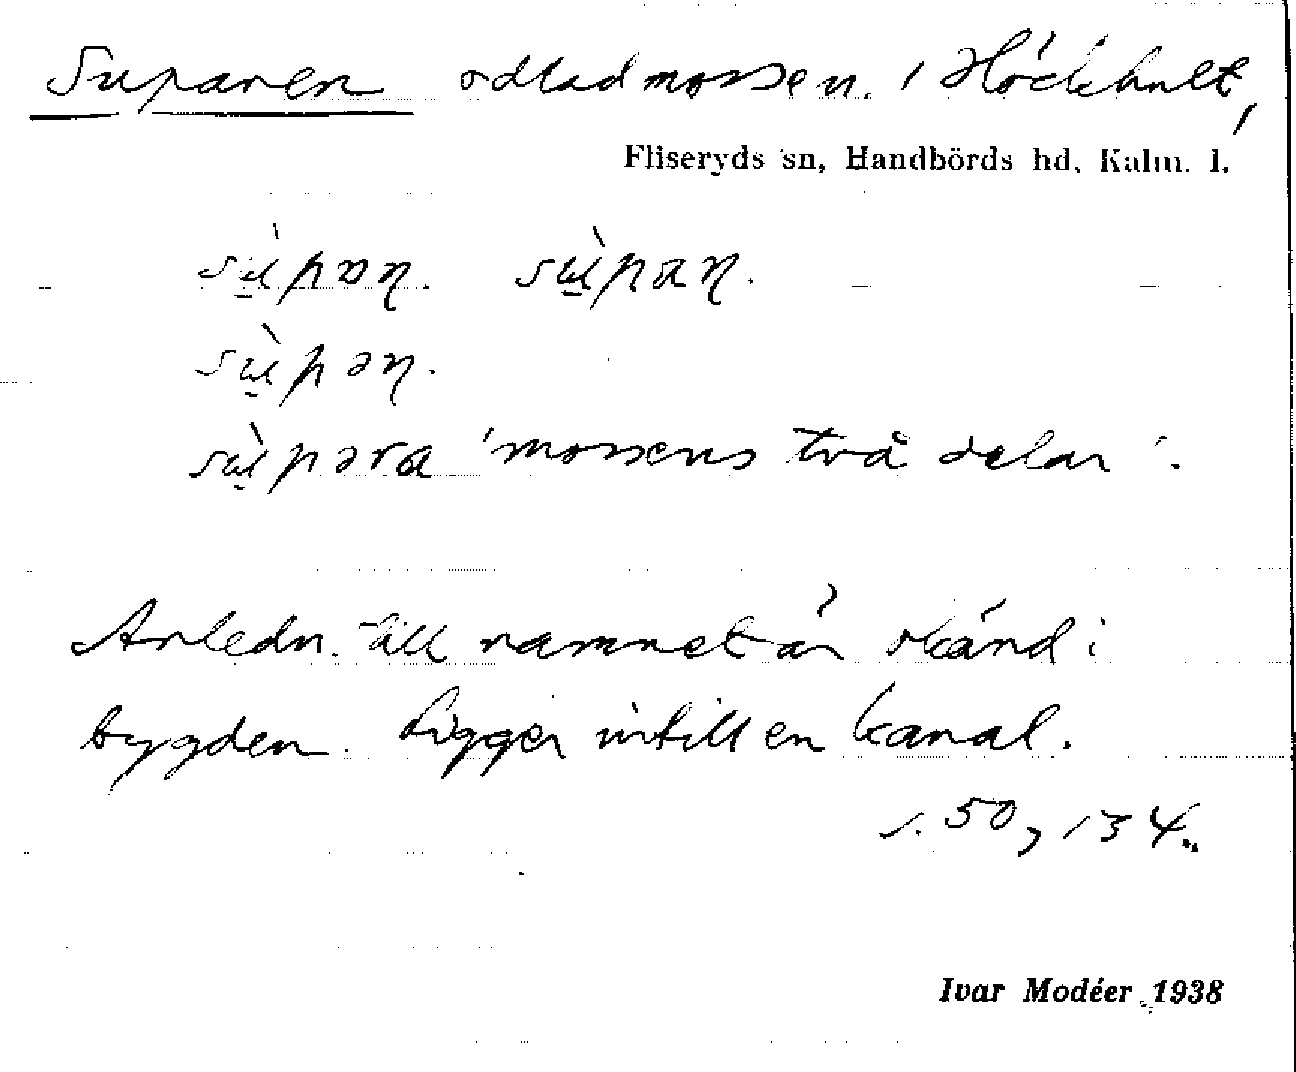 Suparen odlad mossen. i Höckhult,
Fliseryds sn, Handbörds hd, Kalm. l.
sùpan. sùpaɳ.
sùpəɳ.
sùpəra 'mossens två delar'.
Anledn. till namnet är okänd i
bygden. Ligger intill en kanal.
s. 50, 134.
Ivar Modéer 1938